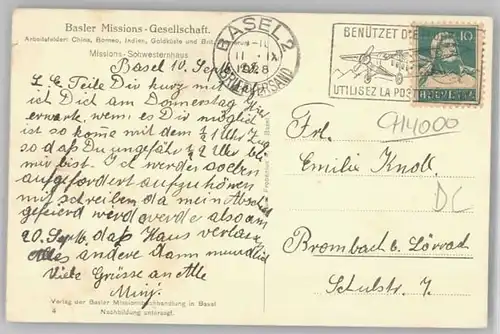 Basler Missions-Gesellschaft.
Arbeitsfelder: China, Borneo, Indien, Goldküste und
Missions-Schwesternhaus
Basel 10. Sept.
L. E. Teile Dir kurz mit
ich Dich am Donnerstag hier
erwarte, wenn es Dir möglich
ist so komme mit dem Uhr Zug
so daß Du ungefähr Uhr bei
mir bist. Ich werde soeben
aufgefordert aufzuhören
mit schreiben da mein Abschied
gefeiert werd werde also am
20. Sept. das Haus verlassen
alles andere dann mündlich
Viele Grüsse an Alle
Minj.
Verlag der Basler Missionsbuchhandlung in Basel
4 Nachbildung untersagt.
BASEL 2
11. IX
1928
BRIEFVERSAND
BENÜTZET DIE
UTILISEZ LA POSTE
10
HELVETIA
914000
DC
Frl.
Emilie Knoll.
Brombach b/ Lörrach
Schulstr. 7